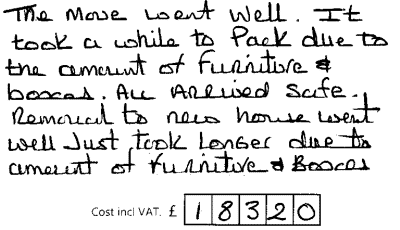 The Move went well. It
took a while to Pack due to
the amount of furniture &
boxes. All Arrived Safe.
Removal to new house went
well Just took Longer due to
amount of furniture & Boxes
Cost incl VAT. £ 18320